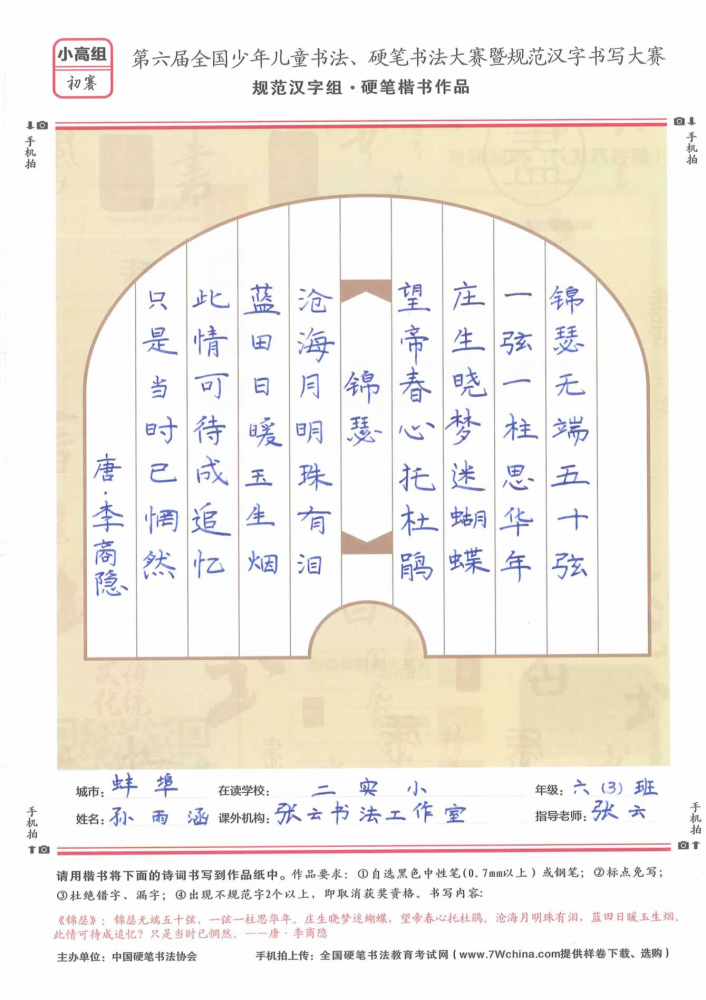 小高组
初赛
第六届全国少年儿童书法、硬笔书法大赛暨规范汉字书写大赛
规范汉字组·硬笔楷书作品
手机拍
手机拍
锦瑟无端五十弦
一弦一柱思华年
庄生晓梦迷蝴蝶
望帝春心托杜鹃
锦瑟
沧海月明珠有泪
蓝田日暖玉生烟
此情可待成追忆
只是当时已惘然
唐·李商隐
城市：蚌埠 在读学校：二实小 年级：六（3）班
姓名：孙雨涵 课外机构：张云书法工作室 指导老师：张云
手机拍
手机拍
请用楷书将下面的诗词书写到作品纸中。作品要求：①自选黑色中性笔(0.7mm以上)或钢笔；②标点免写；
③杜绝错字、漏字；④出现不规范字2个以上，即取消获奖资格。书写内容：
《锦瑟》：锦瑟无端五十弦，一弦一柱思华年。庄生晓梦迷蝴蝶，望帝春心托杜鹃。沧海月明珠有泪，蓝田日暖玉生烟。
此情可待成追忆？只是当时已惘然。——唐·李商隐
主办单位：中国硬笔书法协会 手机拍上传：全国硬笔书法教育考试网（www.7Wchina.com提供样卷下载、选购）